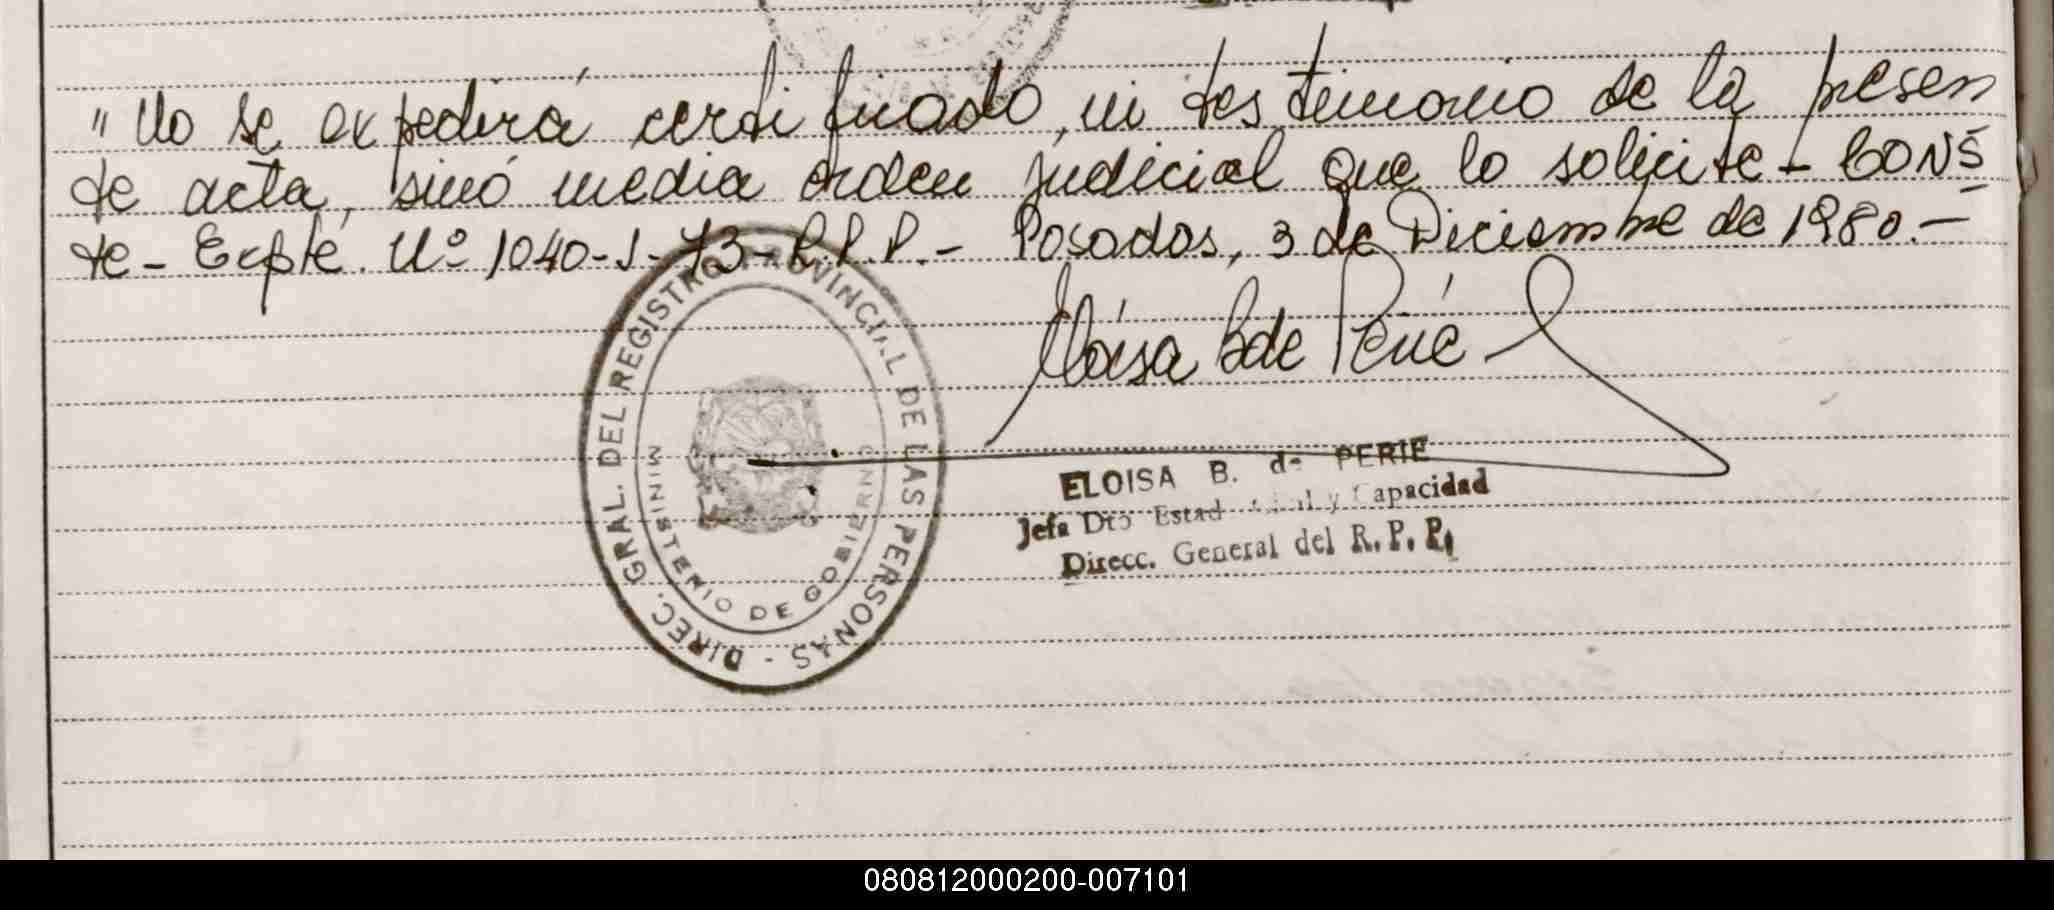 "No se expedirá certificado, ni testimonio de la presen
te acta, sinó media orden judicial que lo solicite - CONS
te - Expte. Nº 1040-J-73-R.P.P.- Posadas, 3 de Diciembre de 1980.-
Eloisa B de Perié
DIREC. GRAL. DEL REGISTRO PROVINCIAL DE LAS PERSONAS -
MINISTERIO DE GOBIERNO
ELOISA B. de PERIE
Jefa Dto Estad y Capacidad
Direcc. General del R. P. P.
080812000200-007101